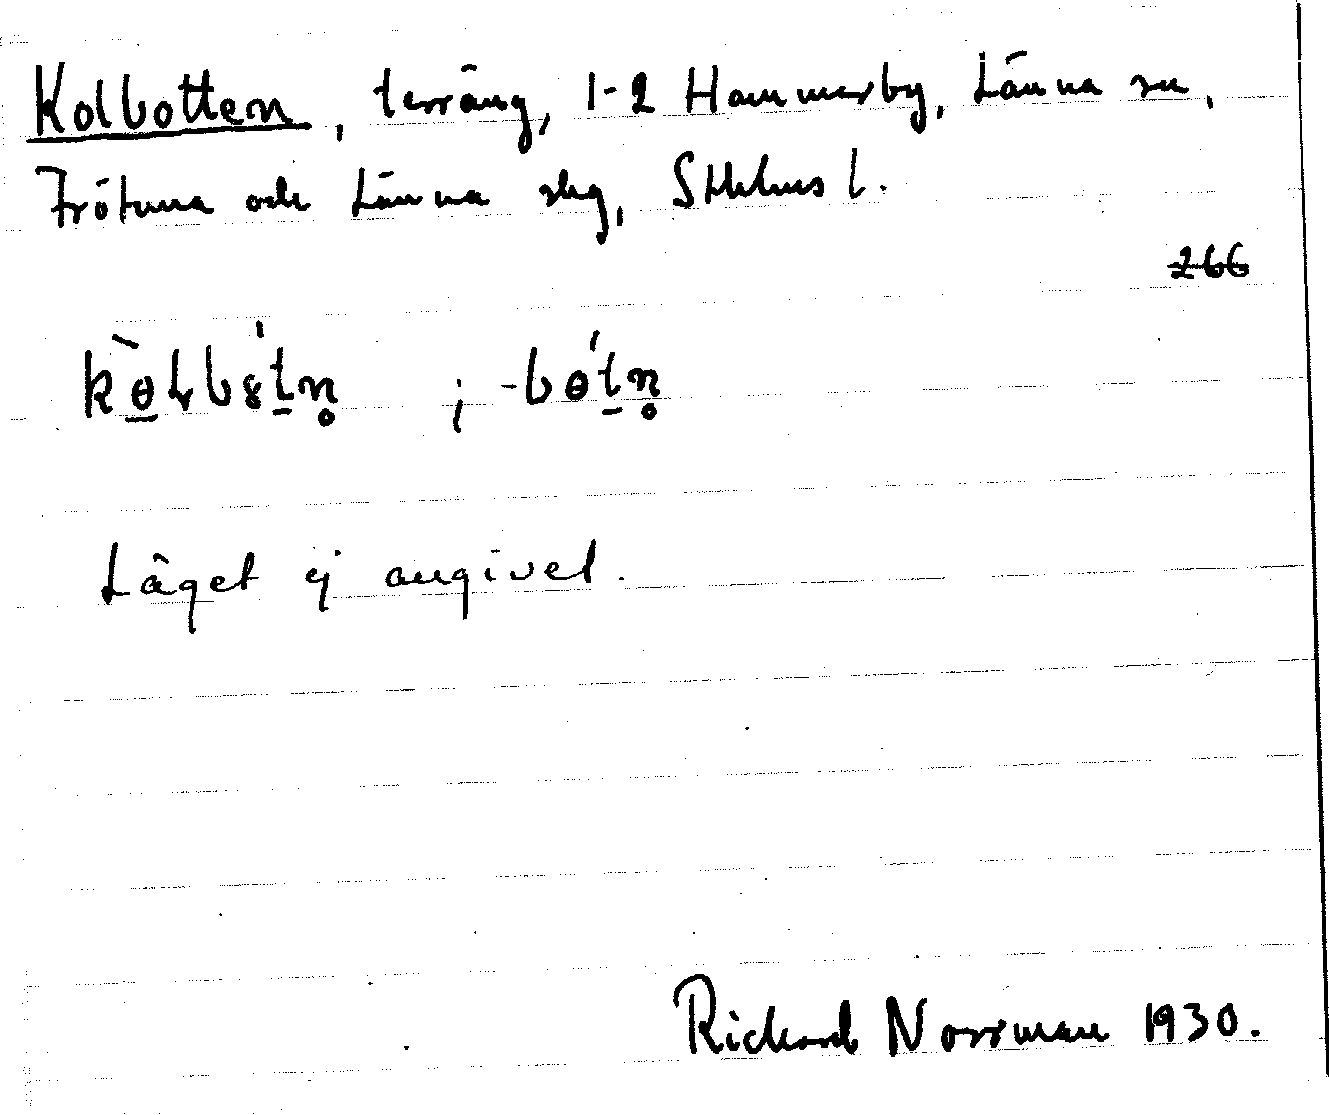 Kolbotten, terräng, 1-2 Hammarby, Länna sn,
Frötuna och Länna slg, Sthlms l.
266
Läget ej angivet.
Rickard Norrman 1930.